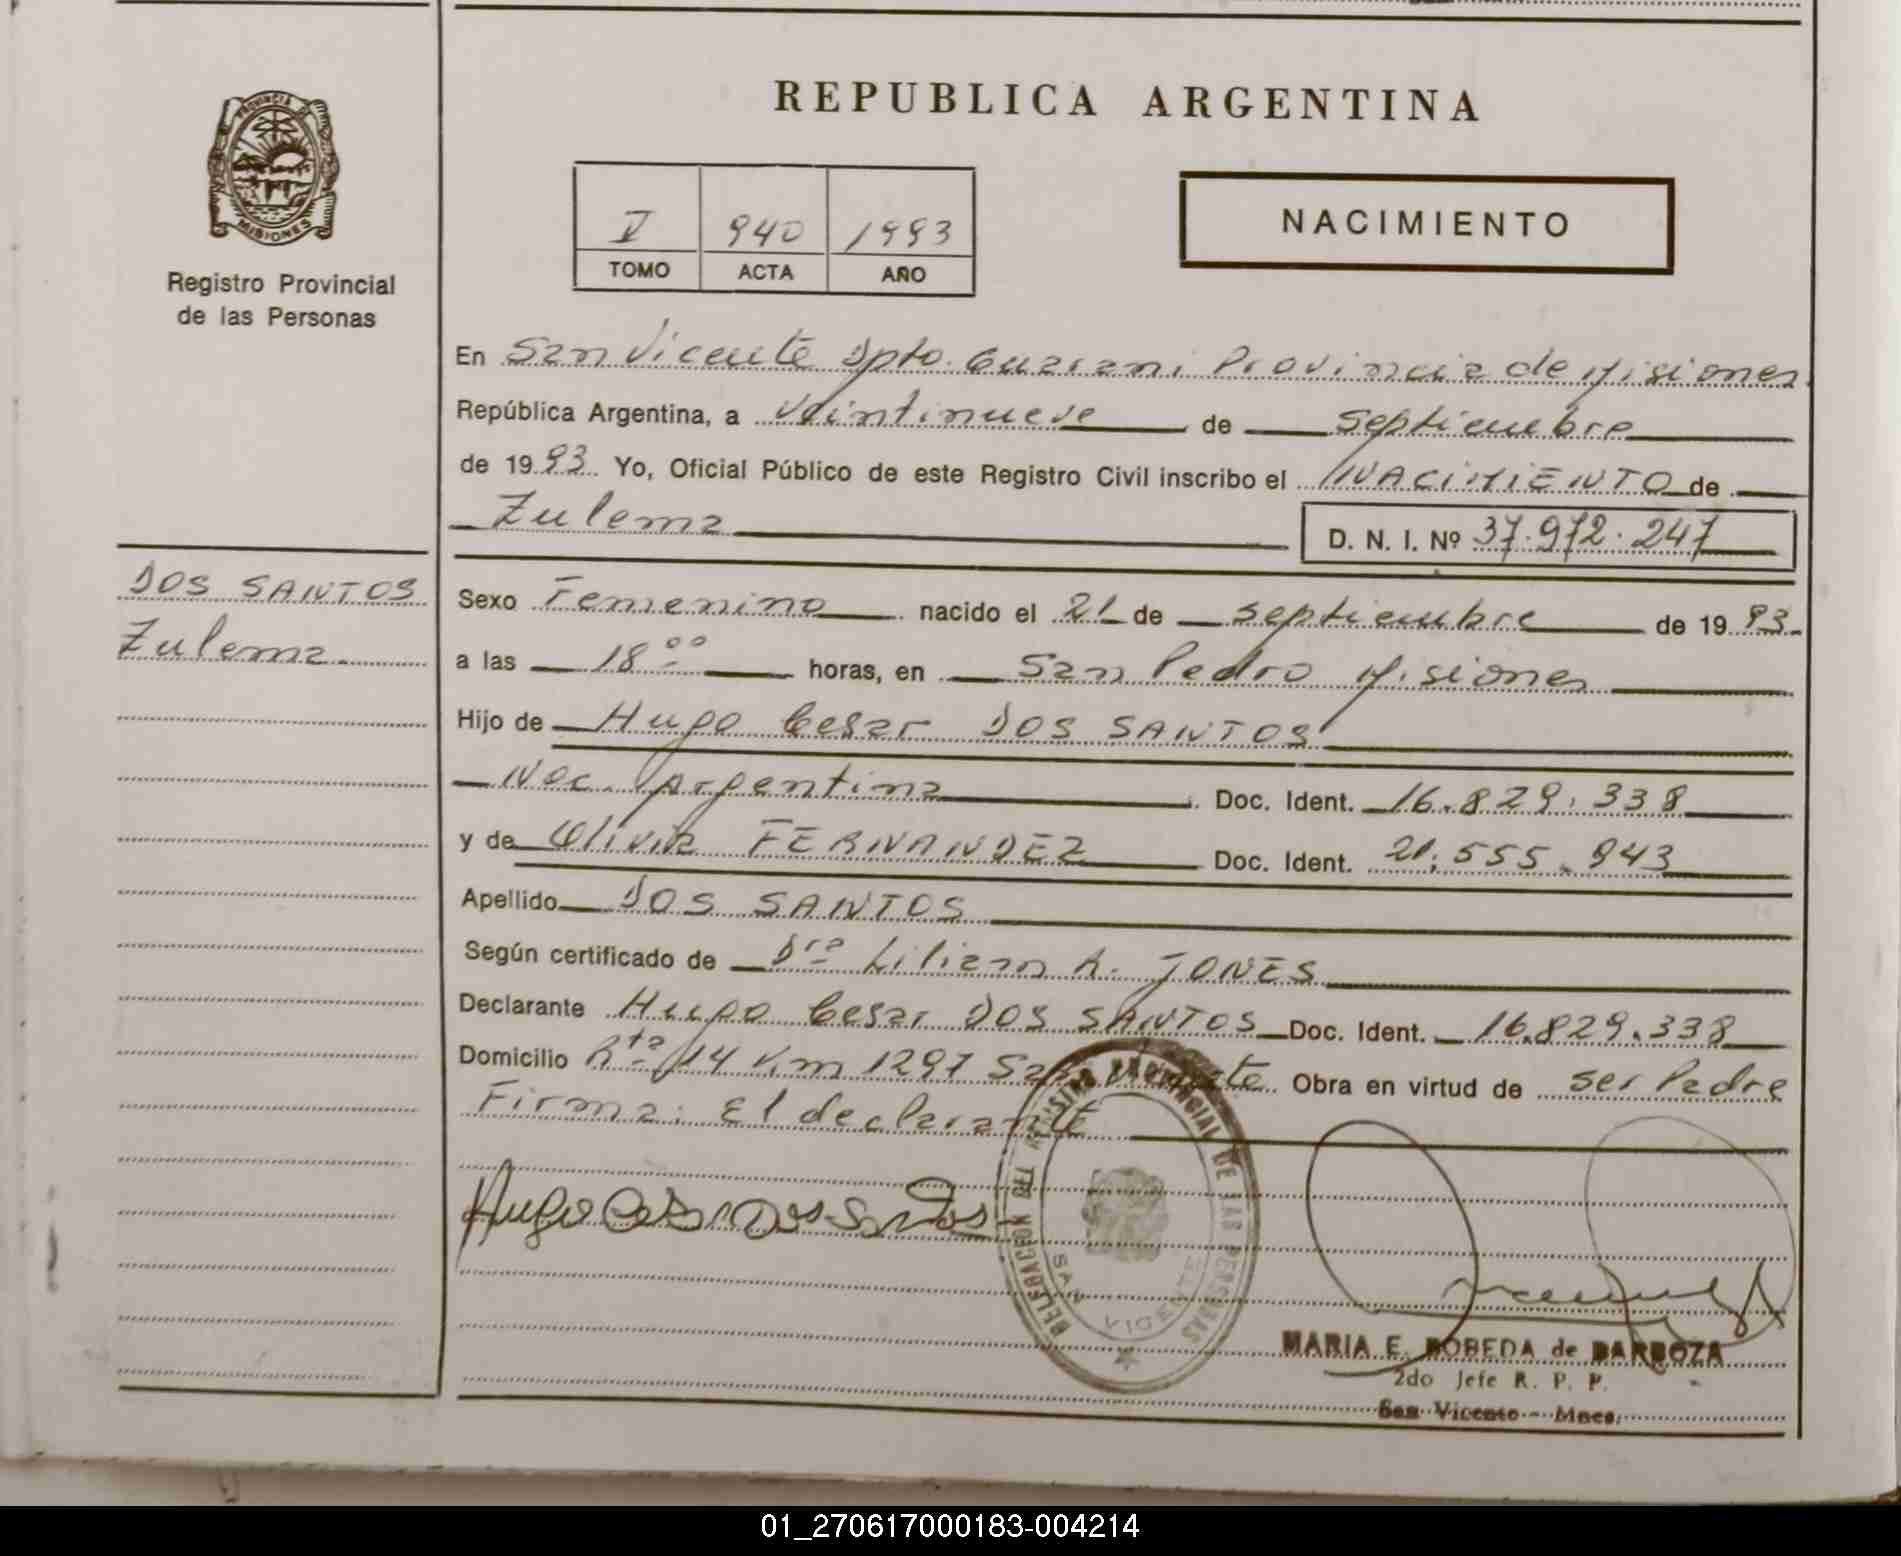 REPUBLICA ARGENTINA
PROVINCIA DE
MISIONES
Registro Provincial
de las Personas
V 940 1993
TOMO ACTA AÑO
NACIMIENTO
En San Vicente Dpto. Guarani Provincia de Misiones
República Argentina, a veintinueve de septiembre
de 1993 Yo, Oficial Público de este Registro Civil inscribo el NACIMIENTO de
Zulema D. N. I. Nº 37.972.247
DOS SANTOS
Zulema
Sexo Femenino nacido el 21 de septiembre de 1993
a las 18 00 horas, en San Pedro Misiones
Hijo de Hugo Cesar DOS SANTOS
Nac. Argentina Doc. Ident. 16.829.338
y de Olivia FERNANDEZ Doc. Ident. 21.555.943
Apellido DOS SANTOS
Según certificado de Dra Lilian A. JONES
Declarante Hugo Cesar DOS SANTOS Doc. Ident. 16.829.338
Domicilio Rta 14 Km 1297 San Vicente Obra en virtud de ser Padre
Firma: El declarante
Hugo Cesar Dos Santos
DELEGACION DEL REGISTRO PROVINCIAL DE LAS PERSONAS
SAN VICENTE
MARIA E. BOBEDA de BARBOZA
2do Jefe R. P. P.
San Vicente - Mnes.
01_270617000183-004214